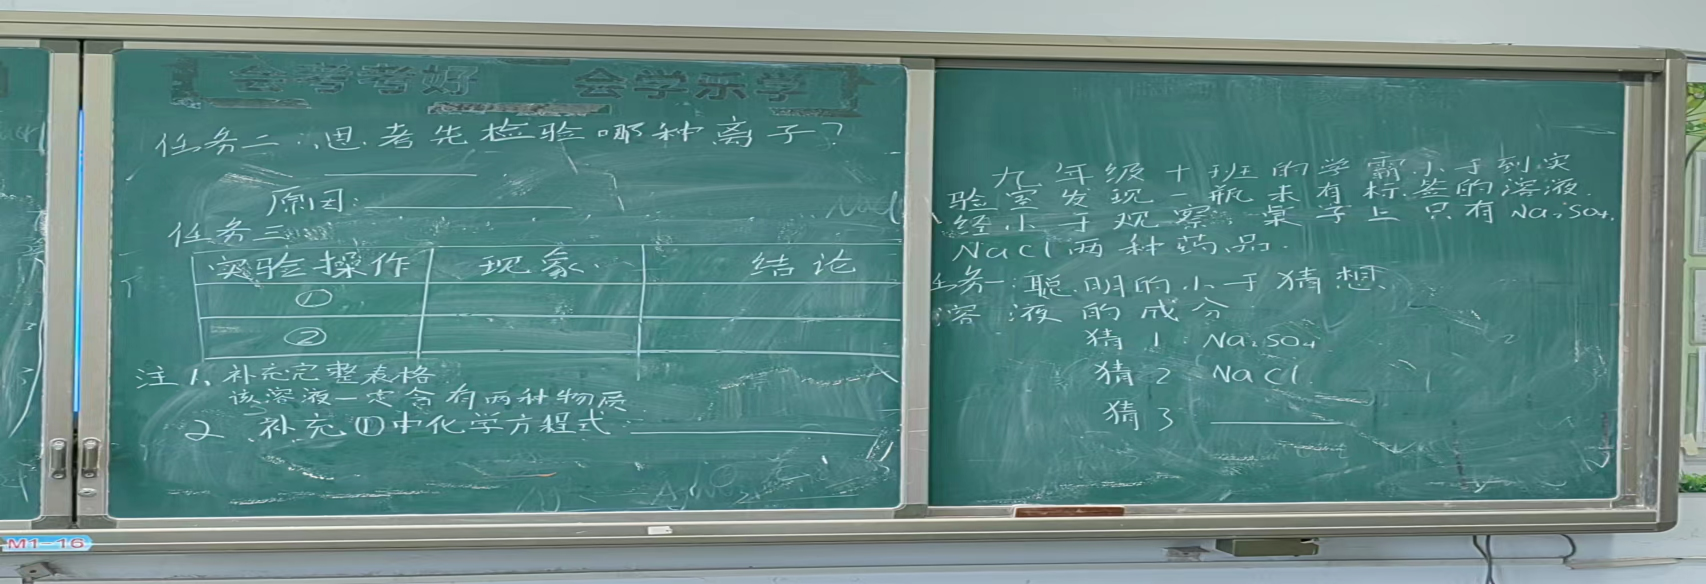 会考考好 会学乐学
任务二:思考先检验哪种离子?
原因:
任务三
实验操作 现象 结论
①
②
注1、补充完整表格
该溶液一定含有两种物质
2 补充①中化学方程式
九年级十班的学霸小于到实
验室发现一瓶未有标签的溶液.
经小于观察:桌子上只有Na₂SO₄.
NaCl两种药品.
任务一:聪明的小于猜想
溶液的成分
猜1:Na₂SO₄
猜2 NaCl.
猜3
M1-16